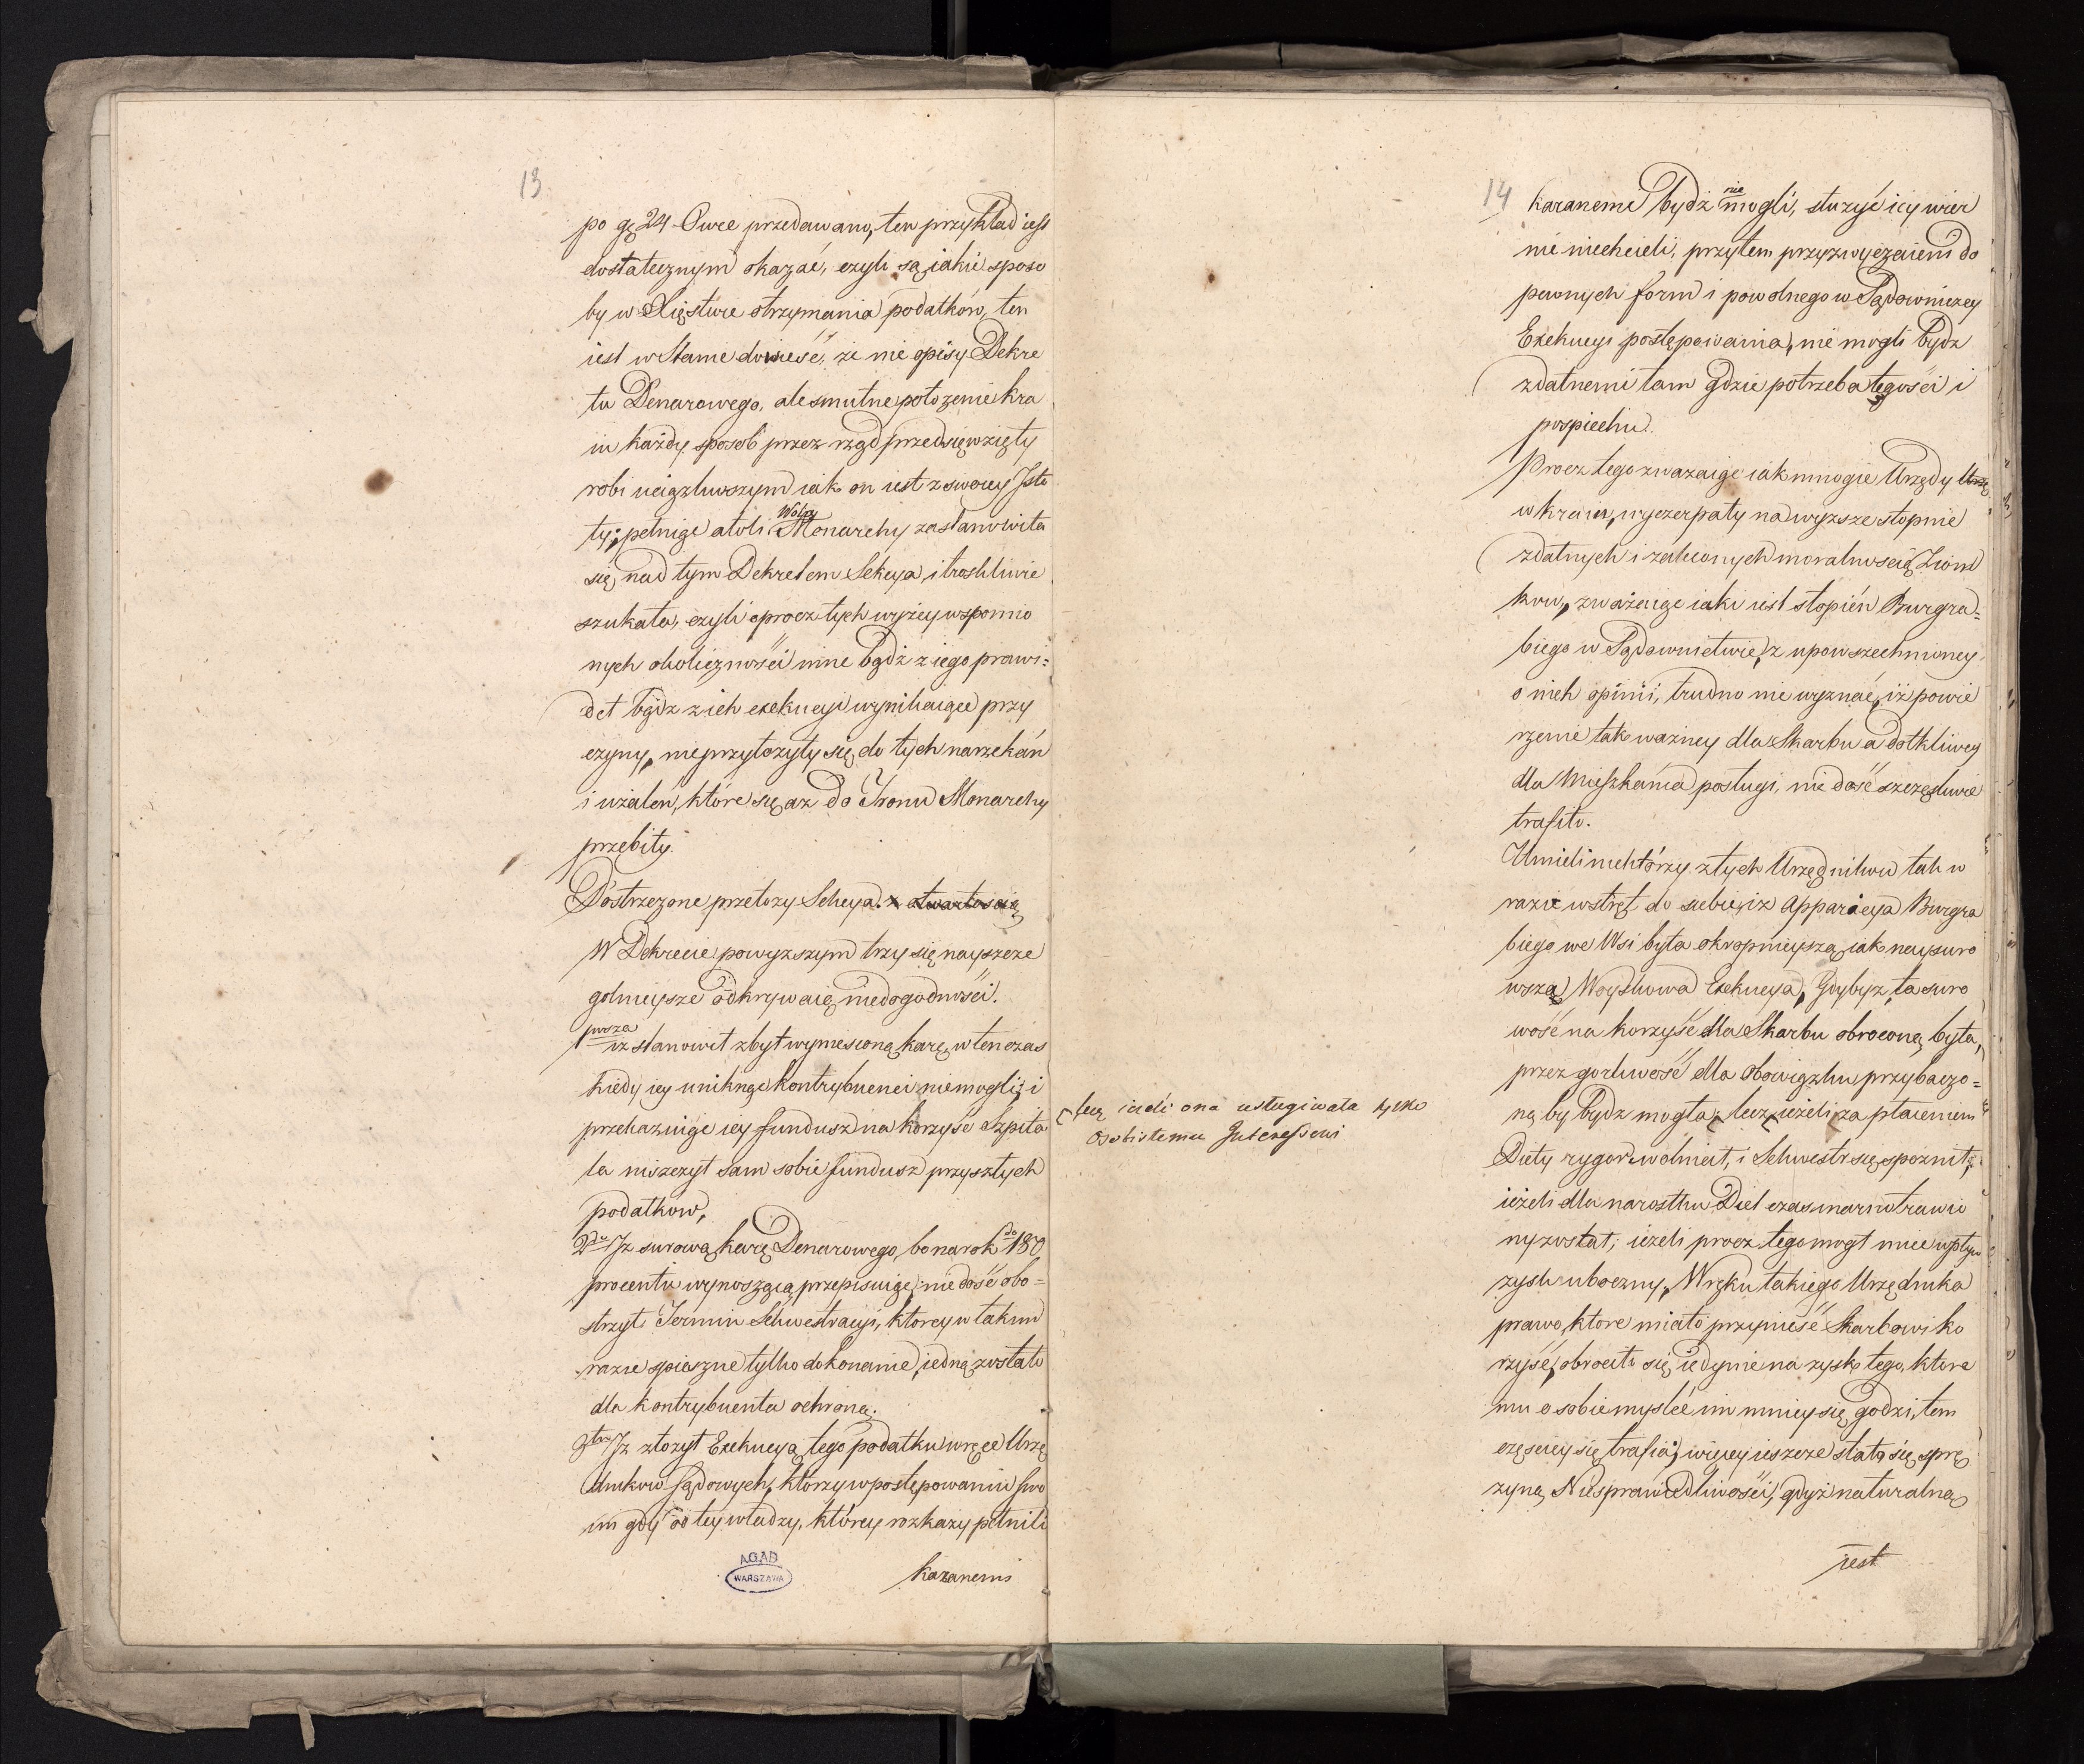 13
po gr 24 Owce przedawano, ten przykład iest
dostatecznym okazać, czyli są iakie sposo
by w Xięstwie otrzymania podatków, ten
iest w Stanie dowieść, że nie opisy Dekre
tu Denarowego, ale smutne położenie kra
iu każdy sposob przez rząd przedsięwzięty
robi uciążliwszym iak on iest z swoiey Isto
ty; pełniąc atoli Wolą Monarchy zastanowiła
się nad tym Dekretem Sekcya, i troskliwie
szukała, czyli oprocz tych wyżey wspomnio
nych okoliczności inne bądź z iego prawi:
deł bądz z ich exekucyi wynikaiące przy
czyny, nieprzyłożyły się do tych narzekań
i użaleń, które się aż do Tronu Monarchy
przebiły.
Dostrzezone przełozy Sekcya. z otwartoscią
W Dekrecie powyzszym trzy się nayszcze
golnieysze odkrywaią niedogodności.
1wsza iz stanowił zbyt wyniesioną karę w ten czas
kiedy iey uniknąc kontrybuenci niemogli; i
przekazuiąc iey fundusz na korzyść Szpita
la niszczył sam sobie fundusz przyszłych
podatkow,
2do Iz surową karę Denarowego, bo na rok do 180
procentu wynoszącą przepisuiąc; nie dość obo=
strzył Termin Sekwestracyi, ktorey w takim
razie spieszne tylko dokonanie, iedną zostało
dla kontrybuenta ochroną.
3tio Iz złozył Exekucyą tego podatku w ręce Urzę
dnikow sądowych, ktorzy w postępowaniu swo
im gdy od tey władzy, którey rozkazy pełnili
karanemi
AGAD
WARSZAWA
14
karanemi bydź nie mogli, słuzyć iey wier
nie niechcieli, przytem przyzwyczaieni do
pewnych form i powolnego w Sądowniczey
Exekucyi postępowania, nie mogli bydz
zdatnemi tam gdzie potrzeba tęgości i
pospiechu.
Procz tego zwazaiąc iak mnogie Urzędy Urzę
w kraiu, wyczerpały na wyzsze stopnie
zdatnych i zaleconych moralnoscią Ziom
kow, zważaiąc iaki iest stopień Burgra=
biego w Sądownictwie, z upowszechnioney
o nich opinii, trudno nie wyznać, iż powie
rzenie tak ważney dla Skarbu a dotkliwey
dla Mieszkańca posługi, nie dość szczęśliwie
trafiło.
Umieli niektórzy z tych Urzędnikow tak w
razić wstręt do siebie, iz Apparicya Burgra
biego we Wsi była okropnieyszą iak naysuro
wszą Woyskowa Exekucya, Gdybyż ta suro
wość na korzyść dla Skarbu obroconą była,
przez gorliwość dla obowiązku przybaczo=
ną by bydz mogła; lecz ieżeli za płaceniem
Diety rygor zwolniał, i Sekwestr się spoznił;
ieżeli dla narostku Diet czas marnotrawio
ny został; ieżeli procz tego mogł miec wpływ
zysk uboczny, W ręku takiego Urzędnika
prawo, ktore miało przynieść Skarbowi ko
rzyść, obrociło się iedynie na zysk tego, ktore
mu o sobie myśleć im mniey się godzi, tem
częsciey się trafia; więcey ieszcze stało się sprę
zyną Niesprawiedliwości, gdyż naturalną
iest
lecz iesli ona usługiwała tylko
osobistemu Interessowi